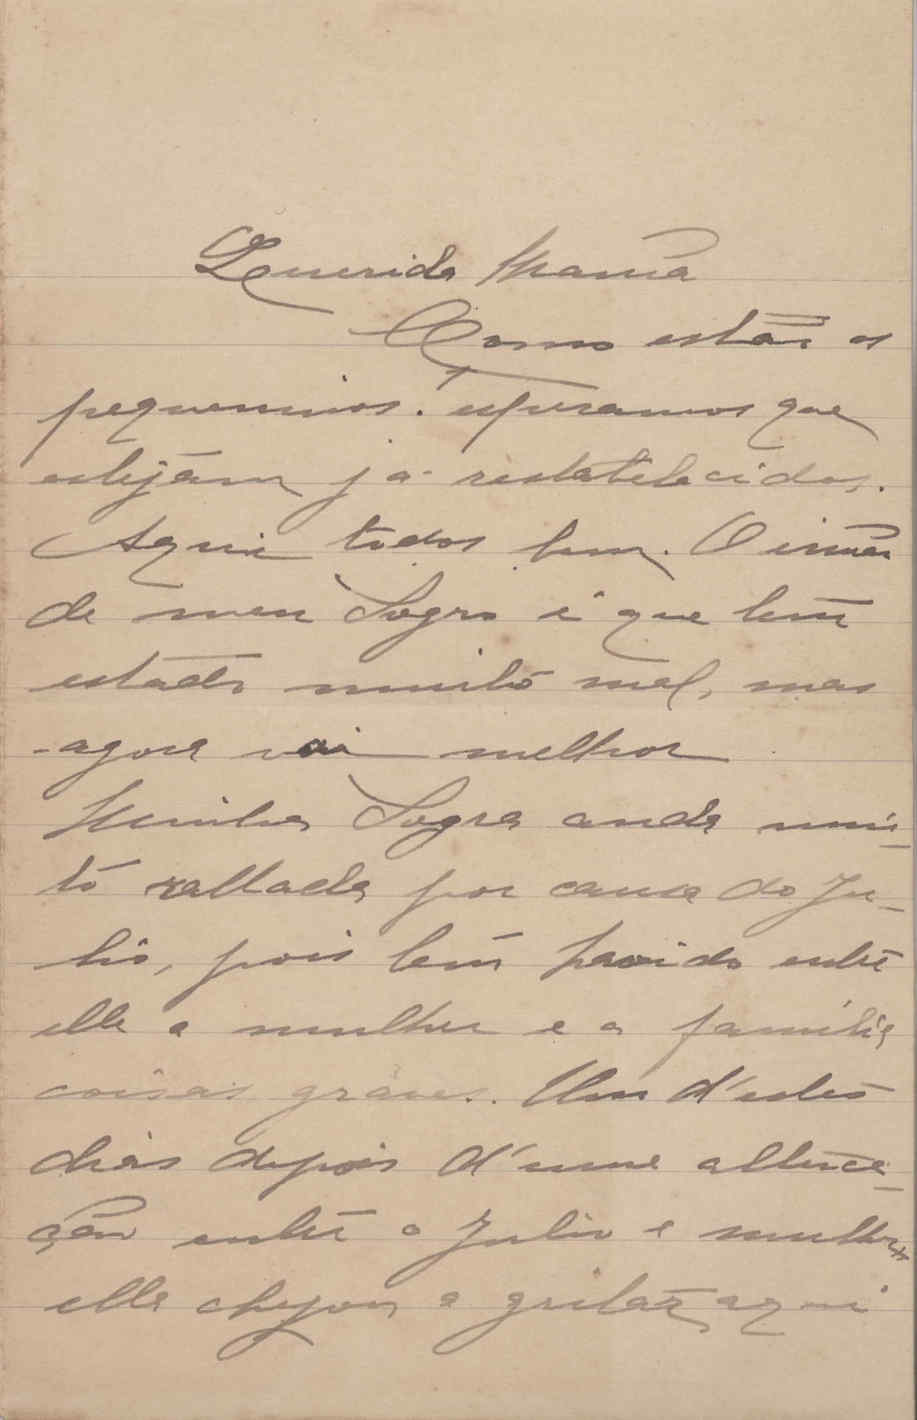 Querida Mamã
Como estão os
pequeninos? esperamos que
estejam já restabelecidos.
Aqui todos bem. O irmão
de meu Sogro é que tem
estado muito mal, mas
agora vai melhor
Minha Sogra anda mui-
to rallada por causa do Ju-
lio, pois tem havido entre
elle a mulher e a familia
coisas graves. Um d'estes
dias depois d'uma alterca-
ção entre o Julio e mulher
elle chegou a gritar aqui